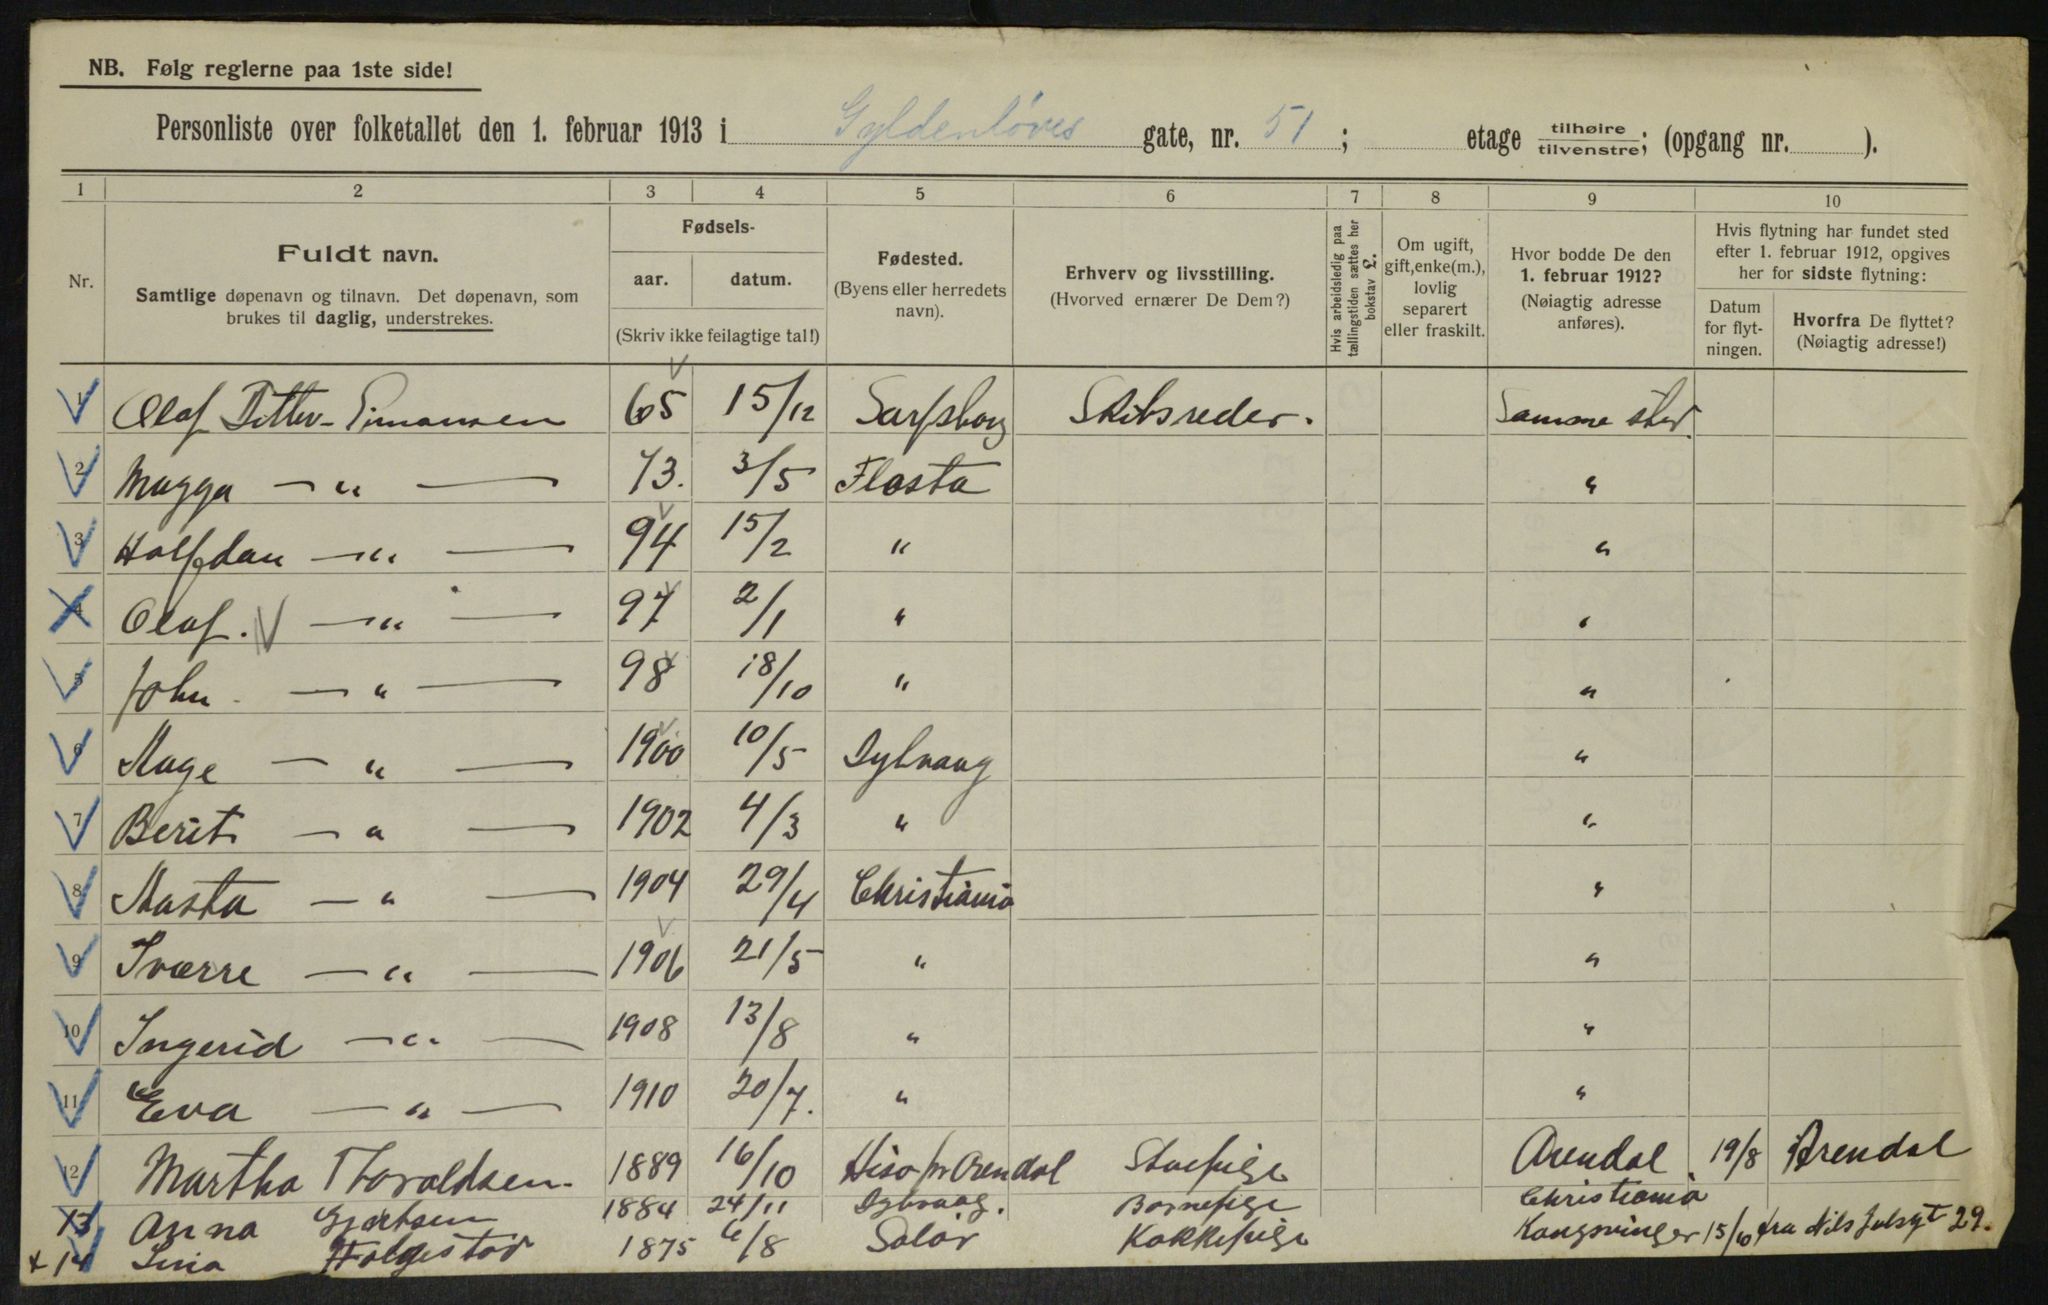 NB. Følg reglerne paa 1ste side!
Personliste over folketallet den 1. februar 1913 i Gyldenløves gate, nr. 51; etage tilhøire tilvenstre; (opgang nr. ).
1 2 3 4 5 6 7 8 9 10
Nr.
Fuldt navn.
Samtlige døpenavn og tilnavn. Det døpenavn, som
brukes til daglig, understrekes.
Fødsels-
aar. datum.
(Skriv ikke feilagtige tal!)
Fødested.
(Byens eller herredets
navn).
Erhverv og livsstilling.
(Hvorved ernærer De Dem?)
Hvis arbeidsledig paa
tællingstiden sættes her
bokstav L.
Om ugift,
gift, enke(m.),
lovlig
separert
eller fraskilt.
Hvor bodde De den
1. februar 1912?
(Nøiagtig adresse
anføres).
Hvis flytning har fundet sted
efter 1. februar 1912, opgives
her for sidste flytning:
Datum
for flyt-
ningen.
Hvorfra De flyttet?
(Nøiagtig adresse!)
1 Olaf Ditlev-Simonsen 65 15/12 Sarpsborg Skibsreder. Samme sted.
2 Magga — " — 73. 3/5 Flosta "
3 Halfdan — " — 94 15/2 " "
4 Olaf. — " — 97 2/1 " "
5 John — " — 98 18/10 " "
6 Aage — " — 1900 10/5 Dybvaag "
7 Berit — " — 1902 4/3 " "
8 Aasta — " — 1904 29/4 Christiania "
9 Sverre — " — 1906 21/5 " "
10 Ingerid — " — 1908 13/8 " "
11 Eva — " — 1910 20/7. " "
12 Martha Thoraldsen. 1889 16/10 Hisø pr Arendal Stuepige Arendal 19/8 Arendal
13 Anna Gjertsen 1884 24/11 Dybvaag. Barnepige Christiania
14 Lina 1875 6/8 Solør Kokkepige Kongsvinger 15/10 fra Nils Juelsgt 29.